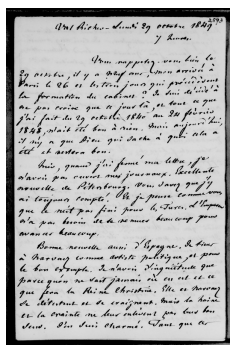 Val Richer - Lundi 29 octobre 1849
7 heures
Vous rappelez-vous bien le
29 octobre, il y a neuf ans, mon arrivée à
Paris le 26 et les trois jours qui précédèrent
la formation du cabinet ? Je suis
ne pas croire que ce jour là, et tout ce que
j'ai fait du 29 octobre 1840 au 24 février
1848, n'ait été bon à rien. Mais aujourd'hui,
il n'y a que Dieu qui sache à quoi cela a
été et restera bon.
Puis, quand j'ai fermé ma lettre, je
n'avois pas ouvert mes journaux. Excellente
nouvelle de Pétersbourg. Vous savez que j'y
ai toujours compté. Je pense comme vous
que ce n'est pas fini pour le Turc. L'Empereur
n'a pas besoin de se remuer beaucoup pour
avancer beaucoup.
Bonne nouvelle aussi d'Espagne. Je tiens
à Narvaez comme artiste politique, et pour
le bon exemple. Je n'avois d'inquiétude que
parce qu'on ne sait jamais où en est et ce
que fera la Reine Christine. Elle et Narvaez
se détestent et se craignent. Mais la haine
et la crainte ne leur enlèvent pas leur bon
sens. J'en suis charmé. Tant que ce